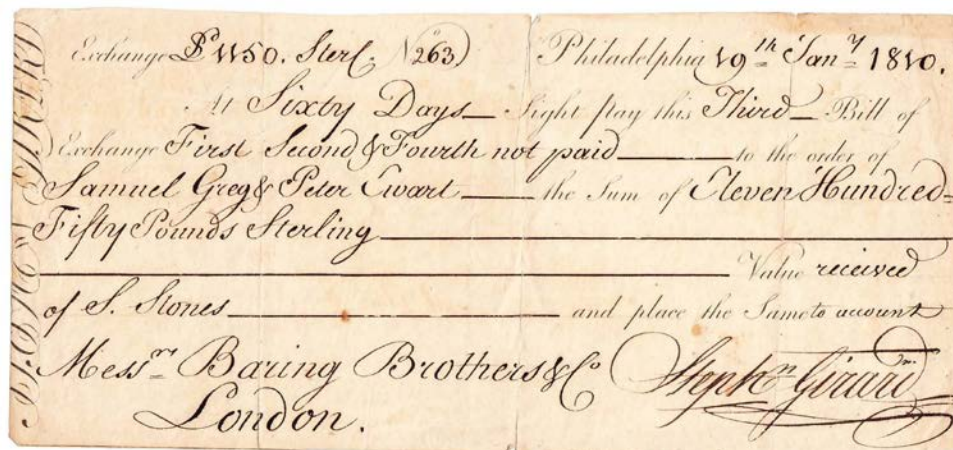 Exchange £ 1150. Sterl. No 263) Philadelphia 19th Jany 1810.
At Sixty Days Sight pay this Third Bill of
Exchange First Second & Fourth not paid to the order of
Samuel Greg & Peter Ewart the Sum of Eleven Hundred
Fifty Pounds Sterling
Value received
of S. Stones and place the Same to account
Messrs Baring Brothers & Co Stepn Girard
London.